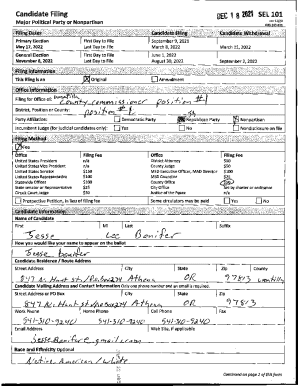 Candidate Filing
DEC 18 2021 SEL 101
Major Political Party or Nonpartisan
Filing Dates Candidate Filing Candidate Withdrawal
Primary Election First Day to File September 9, 2021
May 17, 2022 Last Day to File March 8, 2022 March 11, 2022
General Election First Day to File June 1, 2022
November 8, 2022 Last Day to File August 30, 2022 September 2, 2022
Filing Information
This filing is an Original Amendment
Office Information
Filing for Office of: County Commissioner position #1
District, Position or County: position #1
Party Affiliation: Democratic Party Republican Party Nonpartisan
Incumbent Judge (for judicial candidates only) Yes No Nondisclosure on file
Filing Method
Fee
Office Filing Fee Office Filing Fee
United States President n/a District Attorney $50
United States Vice President n/a County Judge $50
United States Senator $150 MED Executive Officer, MAD Director $100
United States Representative $100 MAD Councilor $25
Statewide Offices $100 County Office $50
State Senator or Representative $25 City Office Set by charter or ordinance
Circuit Court Judge $50 Justice of the Peace n/a
Prospective Petition, in lieu of filing fee Some circulators may be paid Yes No
Candidate Information
Name of Candidate
First MI Last Suffix
Jesse Lee Bonifer
How you would like your name to appear on the ballot
Jesse Bonifer
Candidate Residence / Route Address
Street Address City State Zip County
847 N. Hunt st/PoBox274 Athena OR 97813
Candidate Mailing Address and Contact Information Only one phone number and an email is required.
Street Address or PO Box City State Zip
847 N. Hunt st/PoBox274 Athena OR 97813
Work Phone Home Phone Cell Phone Fax
541-310-9240 541-310-9240 541-310-9240
Email Address Web Site, if applicable
Race and Ethnicity Optional
Native American/White
Continued on page 2 of this form